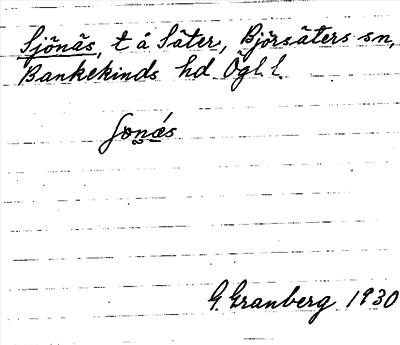 Sjönäs, t å Säter, Björsäters sn,
Bankekinds hd Ögl. l.
G. Granberg 1930